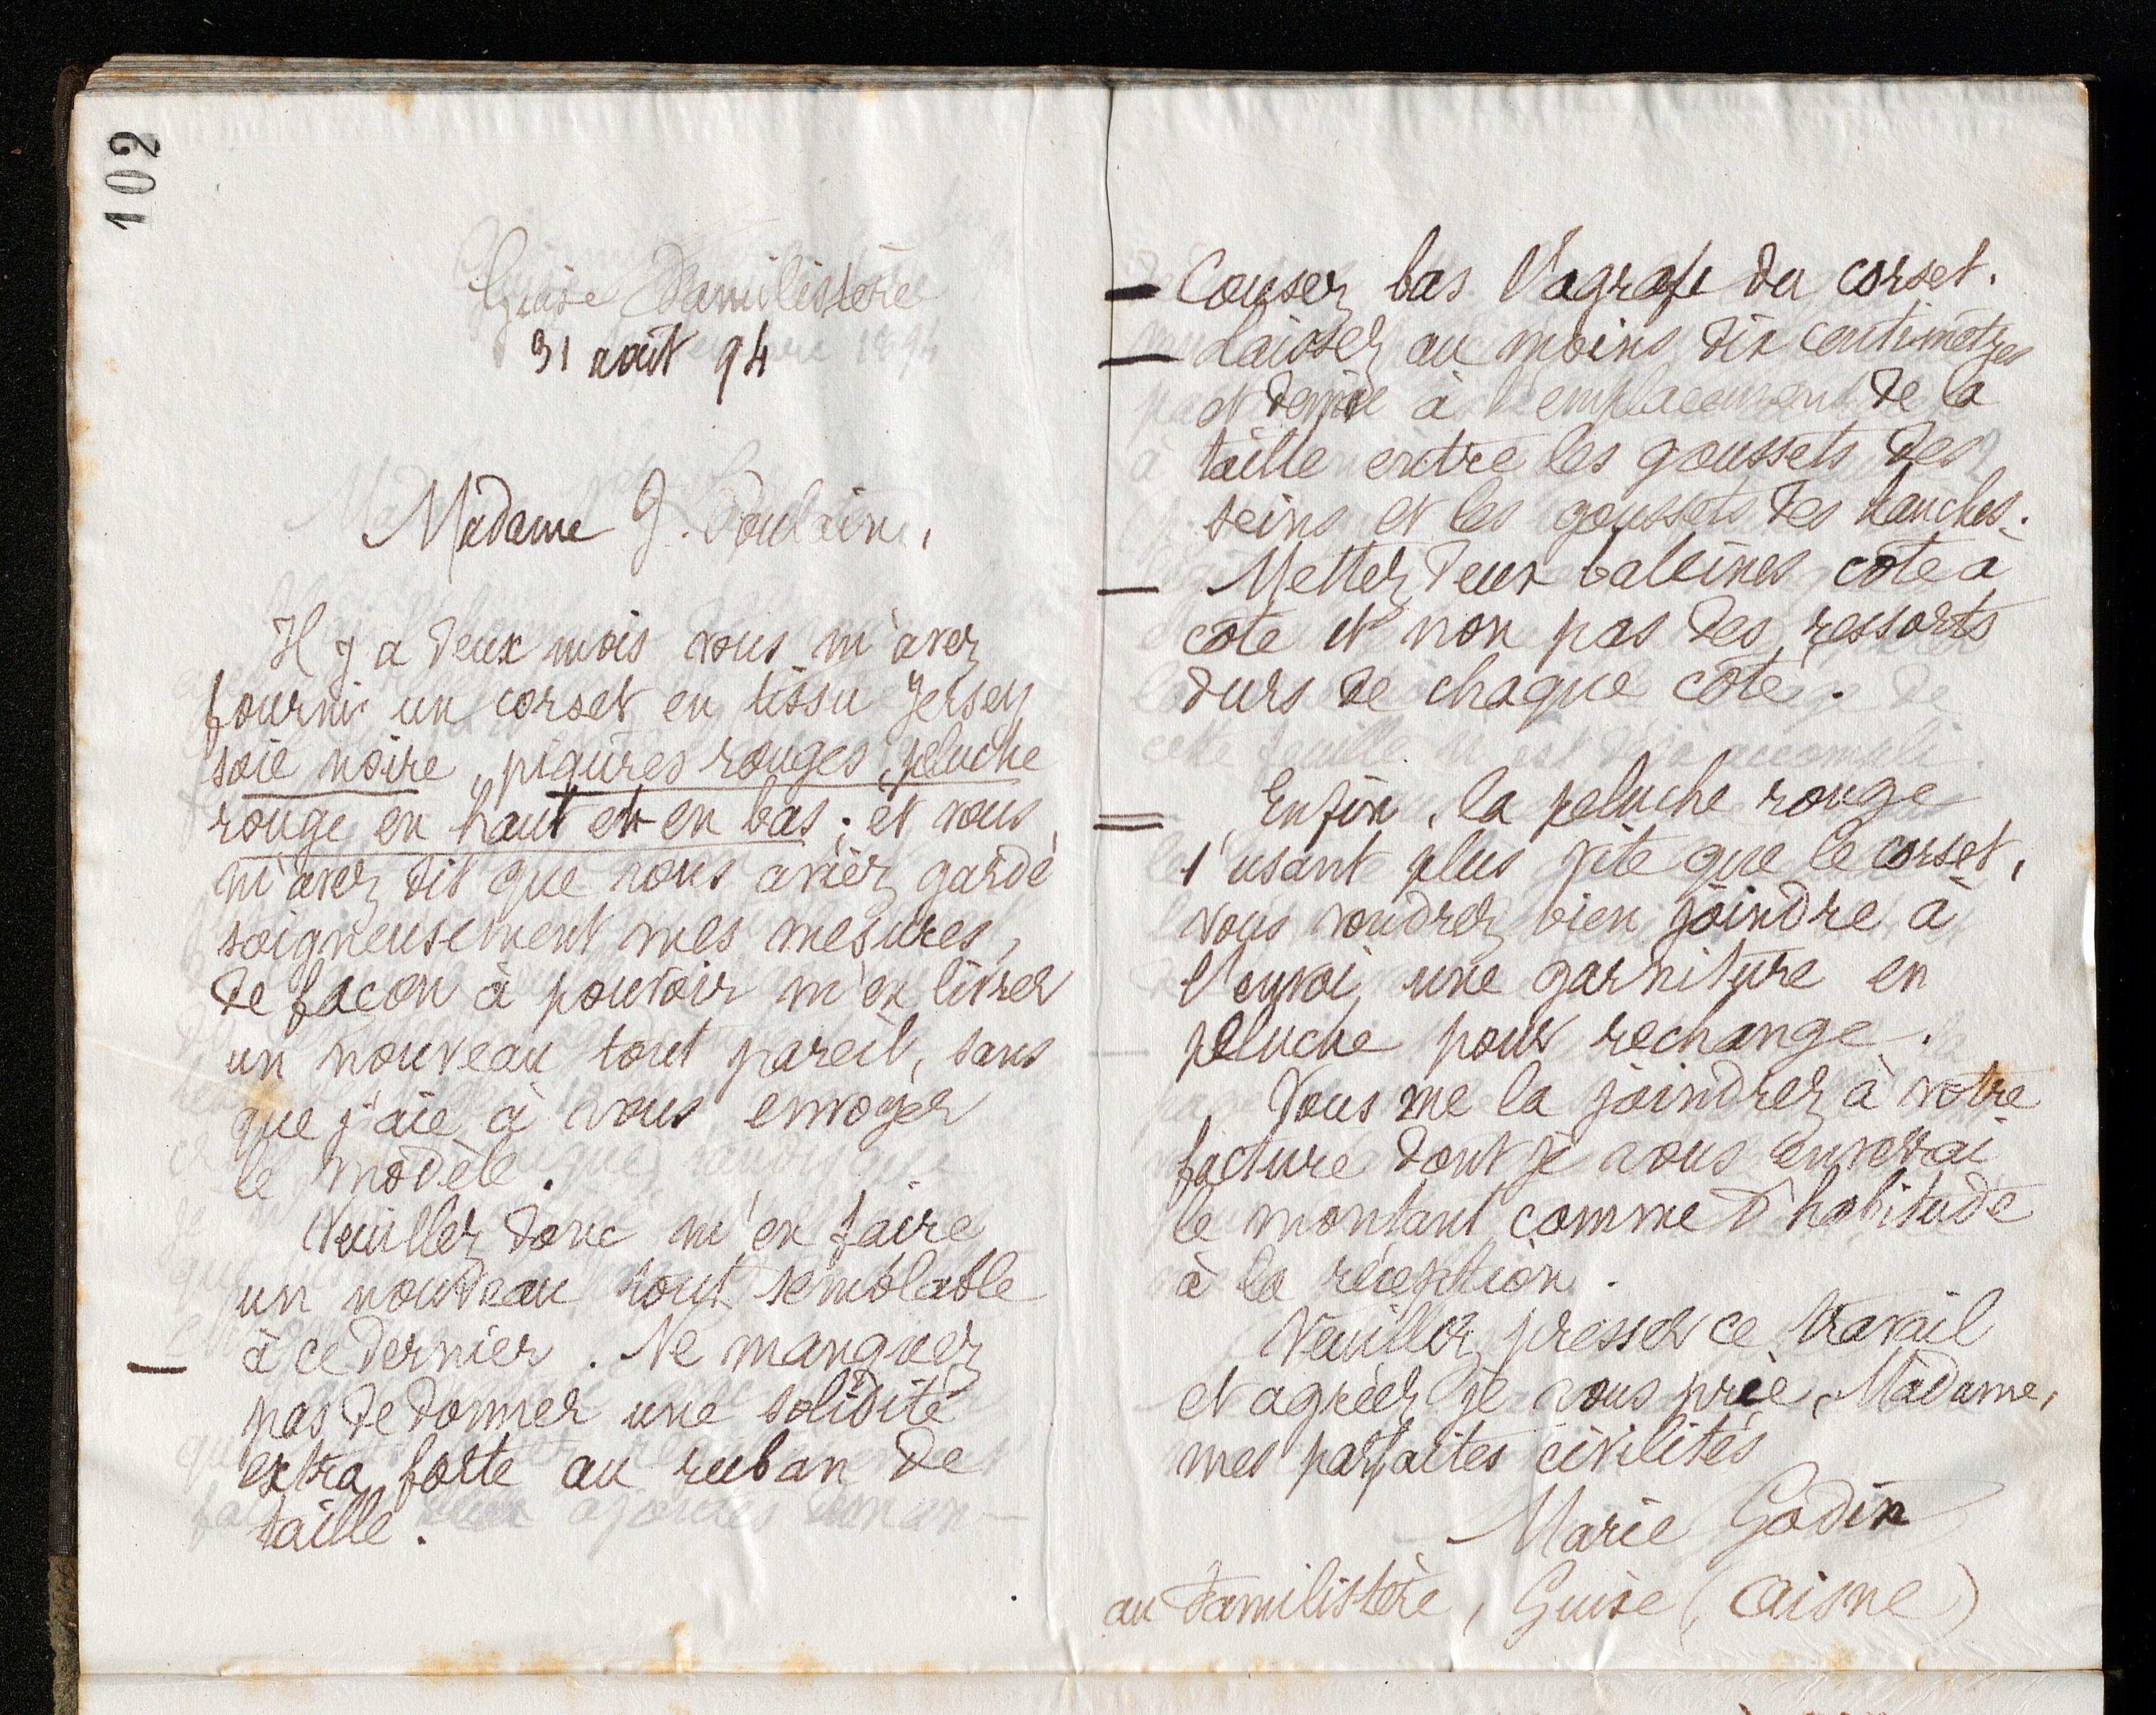 102
Guise Familistère
31 août 94
Madame J. Poulain,
Il y a deux mois vous m'avez
fourni un corset en tissu Jersey
soie noire, piqûres rouges, peluche
rouge en haut et en bas ; et vous
m'avez dit que vous aviez gardé
soigneusement mes mesures,
de façon à pouvoir m'en livrer
un nouveau tout pareil, sans
que j'aie à vous envoyer
le modèle.
Veuillez donc m'en faire
un nouveau tout semblable
à ce dernier. Ne manquez
pas de donner une solidité
extra forte au ruban de
taille.
Couser bas l'agrafe du corset.
Laissez au moins dix centimètres
et demie à l'emplacement de la
taille entre les goussets des
seins et les goussets des hanches.
Mettez deux baleines côte à
côte et non pas des ressorts
durs de chaque côté.
Enfin, la peluche rouge
s'usant plus vite que le corset,
vous voudrez bien joindre à
l'envoi, une garniture en
peluche pour rechange.
Vous me la joindrez à votre
facture dont je vous enverrai
le montant comme d'habitude
à la réception.
Veuillez presser ce travail
et agréer je vous prie, Madame,
mes parfaites civilités
Marie Godin
au Familistère, Guise (Aisne)